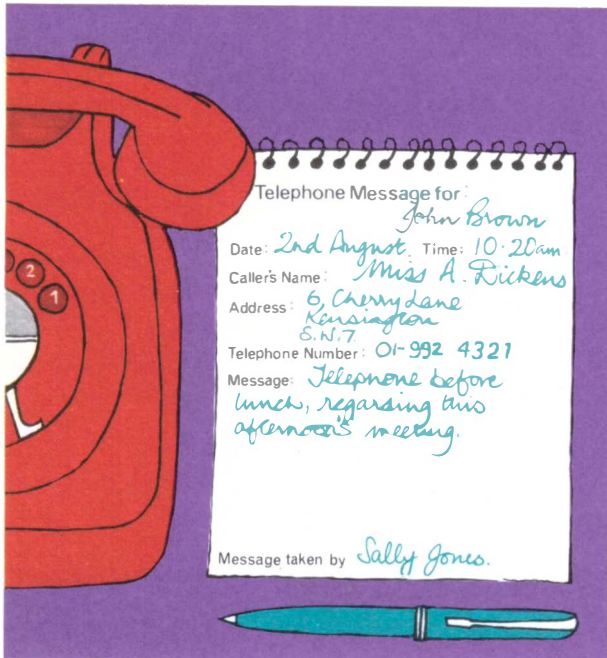 2
1
Telephone Message for:
John Brown
Date: 2nd August. Time: 10.20am
Caller's Name: Miss A. Dickens
Address: 6, Cherry Lane
Kensington
S.W.7.
Telephone Number: 01-992 4321
Message: Telephone before
lunch, regarding this
afternoon's meeting.
Message taken by Sally Jones.